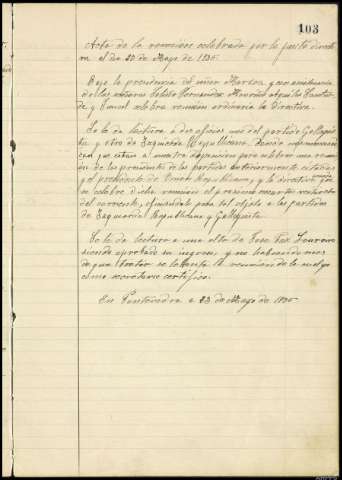 103
Acta de la reunión celebrada por la junta directi
va el día 23 de Mayo de 1935.
Bajo la presidencia del señor
de los señores Hernandez
de y celebra reunión ordinaria la Directiva.
Se le da lectura a dos oficios uno del partido Galleguis
ta y otro de Izquierda Republicana
a nuestra disposición para celebrar una reunión
de los presidentes de los partidos anteriormente citados
y el presidente de Unión Republicana, y la directiva
se celebre dicha reunión el proximo martes
del corriente, para tal objeto a los partidos
de Izquierda Republicana y Galleguista.
Se le da lectura a una alta de Jose Paz Loureno
siendo aprobado su ingreso, y no habiendo mas
de que tratar se levanta la reunión de la cual yo
como secretario certifico.
En Pontevedra a 23 de Mayo de 1935